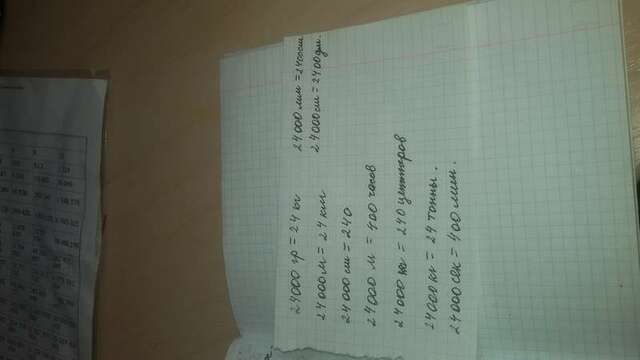 24000 гр = 24 кг
24000 м = 24 км
24000 см = 240
24000 м = 400 часов
24000 кг = 240 центнеров
24000 кг = 24 тонны.
24000 сек = 400 мин.
24000 мм = 2400 см
24000 см = 2400 дм.